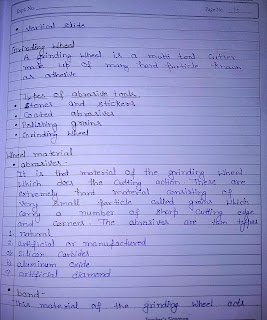 Page No. 11
• vertical slide
Grinding wheel
A grinding wheel is a multi tool cutter
made up of many hard particle known
as adhesive
Types of abrasive tools.
• Stones and stickers
• Coated abrasives
• Polishing grains
• Grinding wheel
Wheel material
• abrasives -
It is that material of the grinding wheel
which does the cutting action these are
extremely hard material consisting of
very small particle called grains which
carry a number of sharp cutting edge
and corners. The abrasives are two types
1. natural
2. artificial or manufactured
silicon carbides
aluminum oxide
artificial diamond
• bond-
This material of the grinding wheel acts